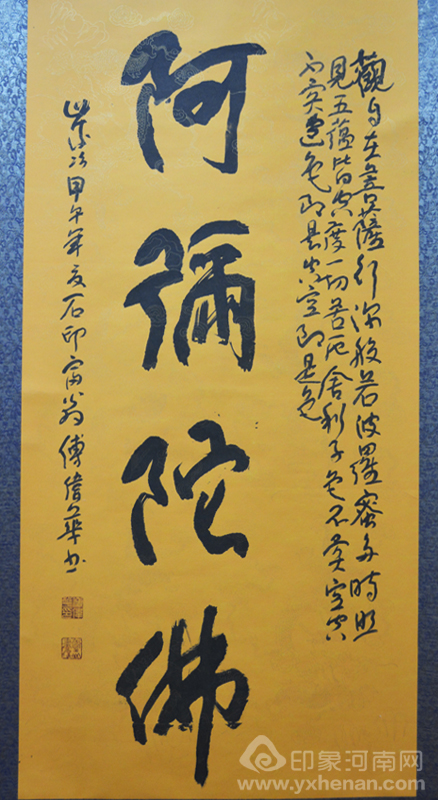 觀自在菩薩行深般若波羅蜜多時照
見五蘊皆空度一切苦厄舍利子色不異空空
不異色色即是空空即是色
阿彌陀佛
歲次甲午年夏石印富翁傅偉華书
印象河南网
www.yxhenan.com